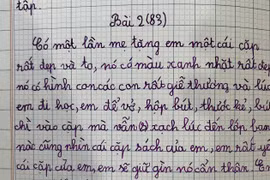 tập.
Bài 2 (83)
Có một lần mẹ tặng em một cái cặp
rất đẹp và to, nó có màu xanh nhạt rất đẹp
nó có hình con các con rất dễ thương và lúc
em đi học, em để vở, hộp bút, thước kẻ, bút
chì vào cặp mà vẫn xách lúc đến lớp bạn
nào cũng nhìn cái cặp sách của em, em rất yê
cái cặp của em, em sẽ giữ gìn nó cẩn thận. E